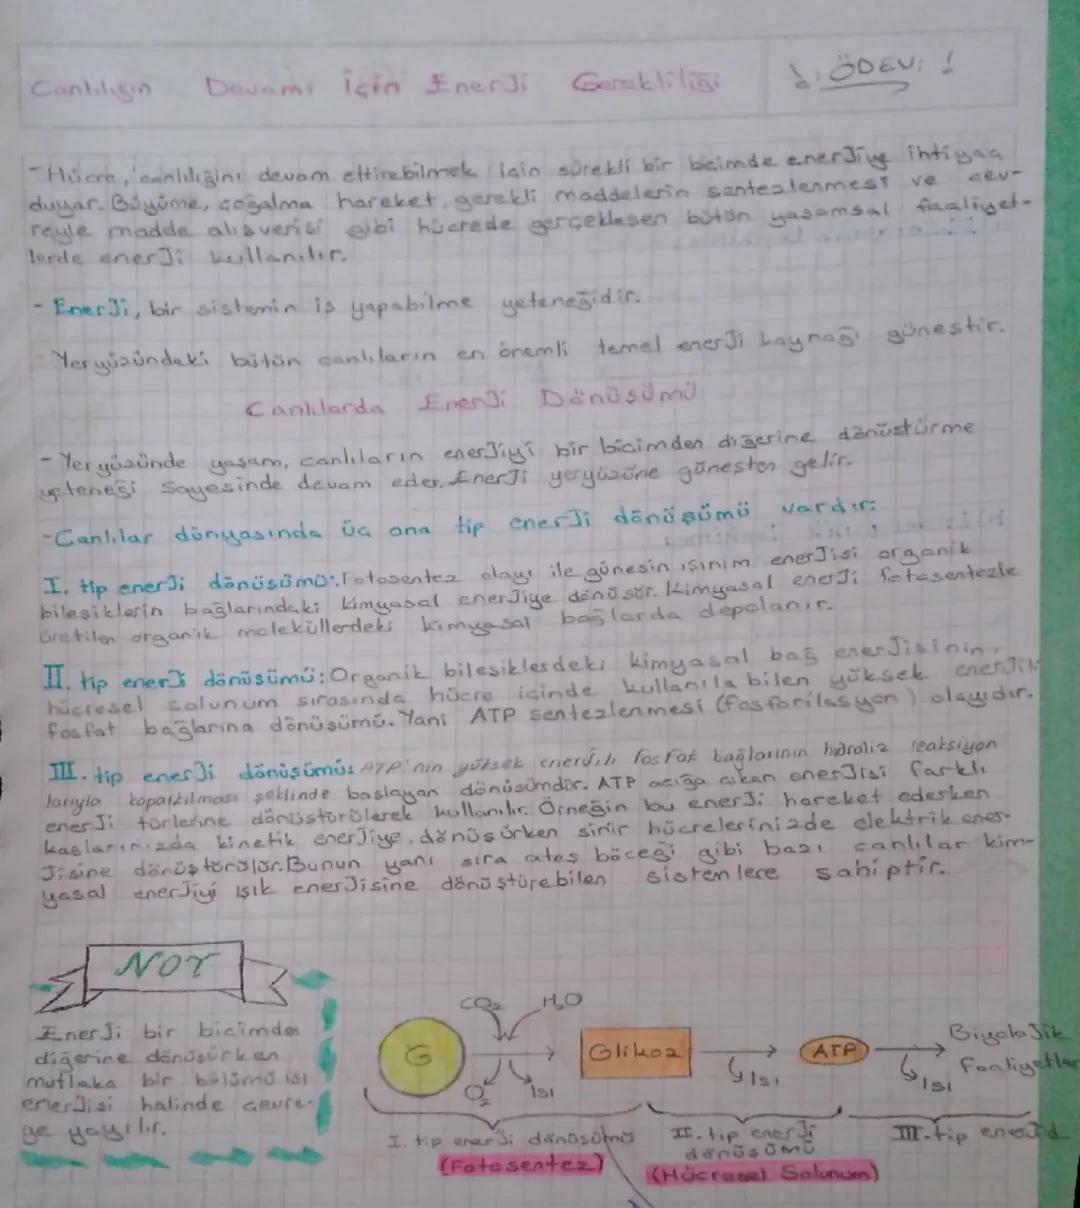 Canlılığın Devamı İçin Enerji Gerekliliği
! ÖDEV: !
- Hücre, canlılığını devam ettirebilmek için sürekli bir biçimde enerjiye ihtiyaç
duyar. Büyüme, çoğalma hareket, gerekli maddelerin sentezlenmesi ve çev-
reyle madde alışverişi gibi hücrede gerçekleşen bütün yaşamsal faaliyet-
lerde enerji kullanılır.
- Enerji, bir sistemin iş yapabilme yeteneğidir.
- Yeryüzündeki bütün canlıların en önemli temel enerji kaynağı güneştir.
Canlılarda Enerji Dönüşümü
- Yeryüzünde yaşam, canlıların enerjiyi bir biçimden diğerine dönüştürme
yeteneği sayesinde devam eder. Enerji yeryüzüne güneşten gelir.
- Canlılar dünyasında üç ana tip enerji dönüşümü vardır:
I. tip enerji dönüşümü: Fotosentez olayı ile güneşin ışınım enerjisi organik
bileşiklerin bağlarındaki kimyasal enerjiye dönüşür. Kimyasal enerji fotosentezle
üretilen organik moleküllerdeki kimyasal bağlarda depolanır.
II. tip enerji dönüşümü: Organik bileşiklerdeki kimyasal bağ enerjisinin,
hücresel solunum sırasında hücre içinde kullanılabilen yüksek enerjili
fosfat bağlarına dönüşümü. Yani ATP sentezlenmesi (fosforilasyon) olayıdır.
III. tip enerji dönüşümü: ATP'nin yüksek enerjili fosfat bağlarının hidroliz reaksiyon
larıyla kopartılması şeklinde başlayan dönüşümdür. ATP açığa çıkan enerjisi farklı
enerji türlerine dönüştürülerek kullanılır. Örneğin bu enerji hareket ederken
kaslarınızda kinetik enerjiye, dönüşürken sinir hücrelerinizde elektrik ener-
jisine dönüştürülür. Bunun yanı sıra ateş böceği gibi bazı canlılar kim-
yasal enerjiyi ışık enerjisine dönüştürebilen sistemlere sahiptir.
NOT
Enerji bir biçimden
diğerine dönüşürken
mutlaka bir bölümü ısı
enerjisi halinde çevre-
ye yayılır.
CO₂ H₂O
G Glikoz ATP Biyolojik
Faaliyetler
O₂ ısı ısı ısı
I. tip enerji dönüşümü
(Fotosentez)
II. tip enerji
dönüşümü
(Hücresel Solunum)
III. tip enerji d